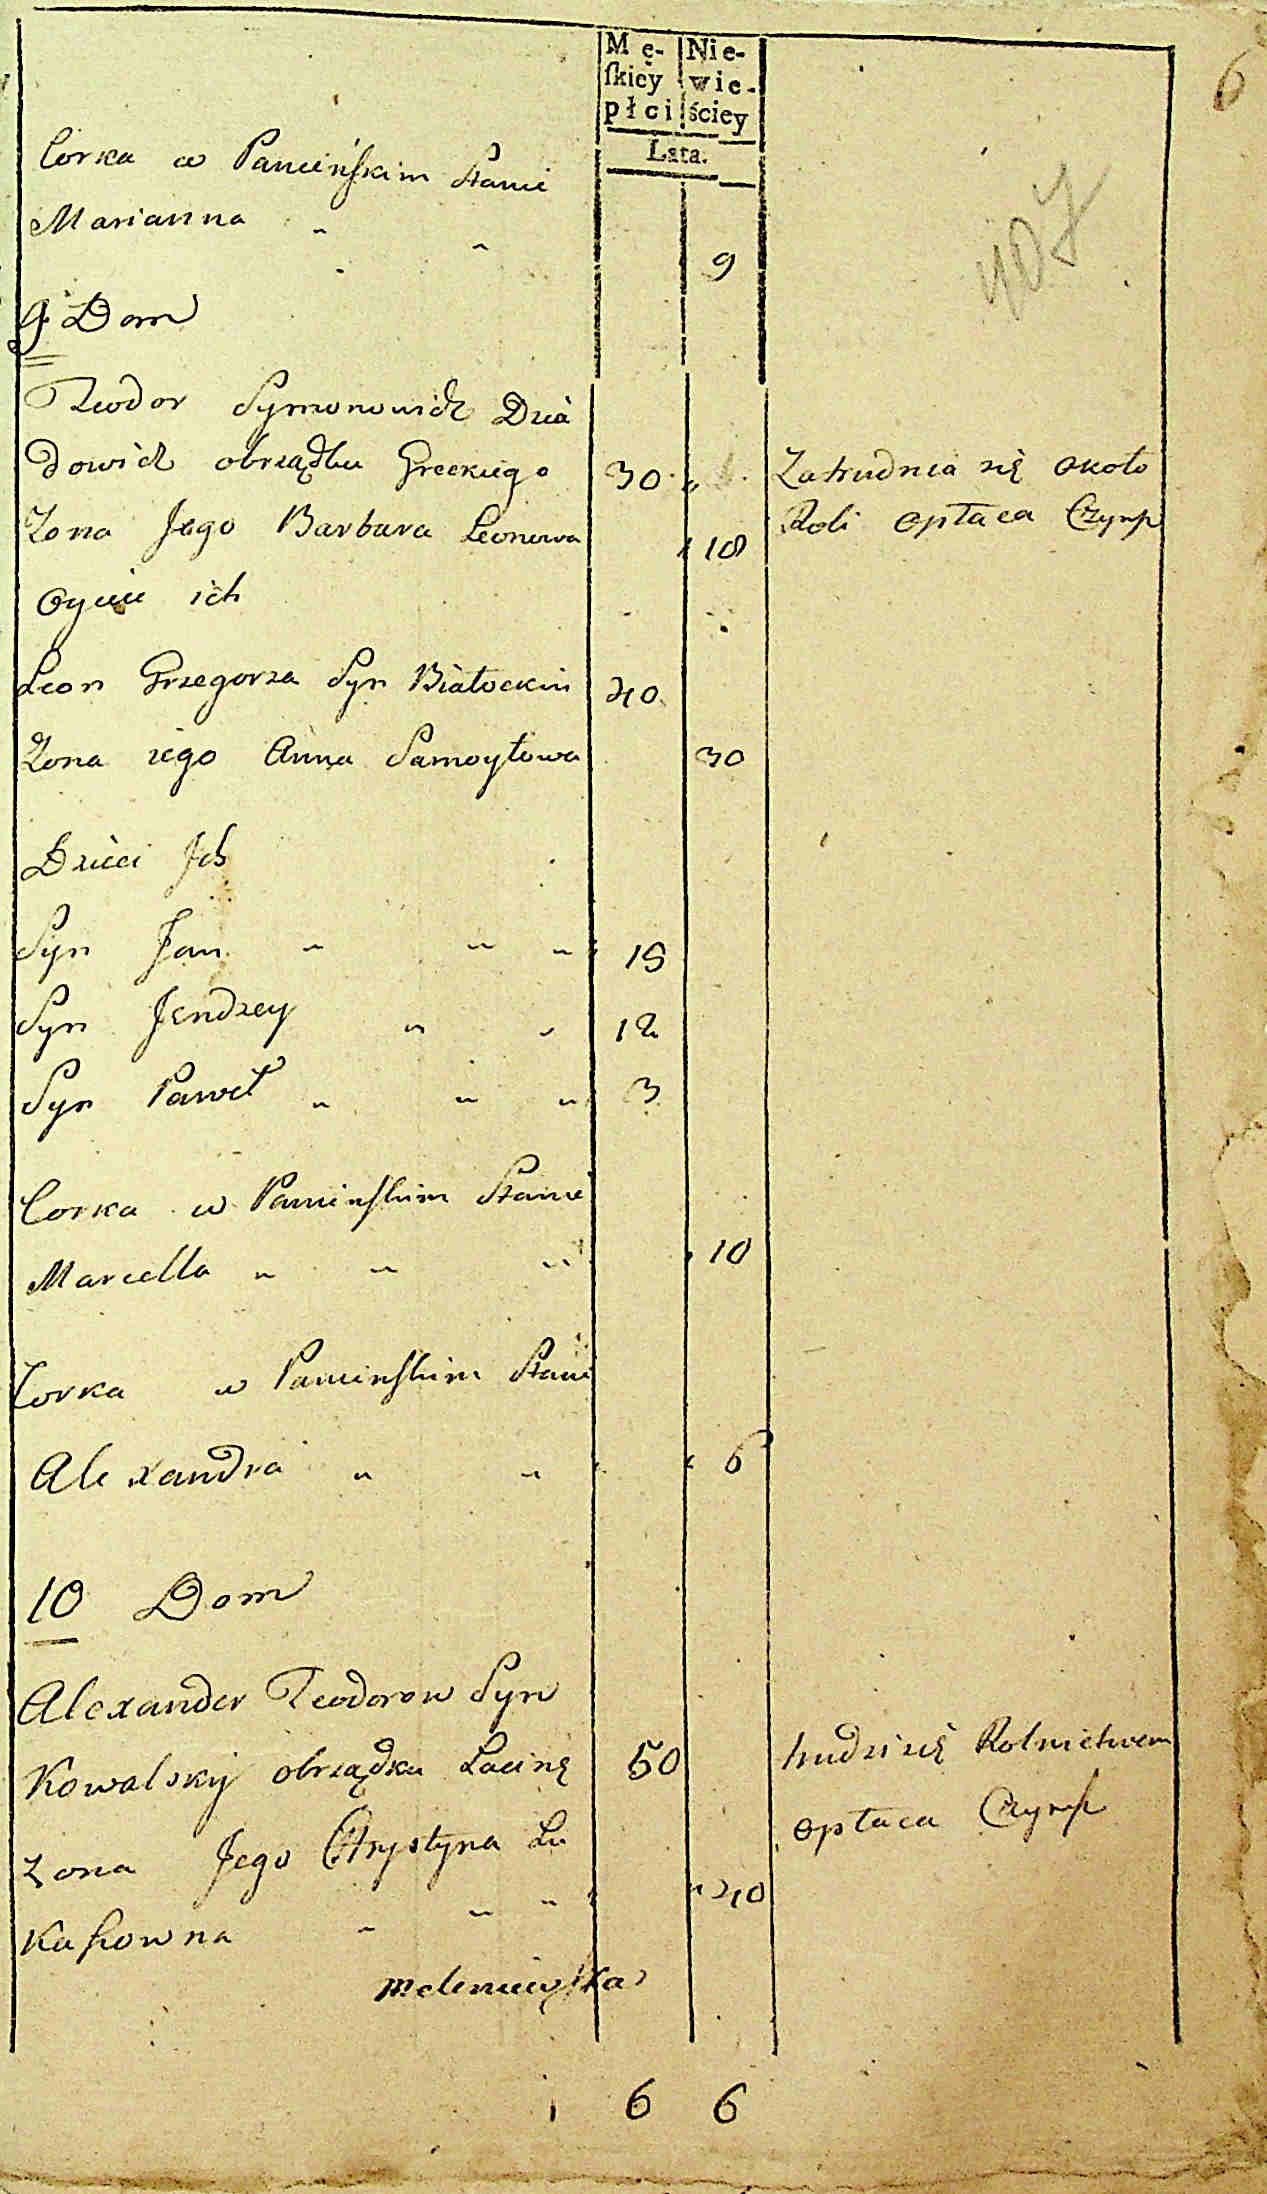 6
Mę- Nie-
ſkiey wie-
płci ściey
Lata.
407
Corka w Panieńſkim Stanie
Marianna " " 9
9 Dom
Teodor Symonowicz Dzia
dowicz obrządku Greckiego 30 " Zatrudnia się około
Roli opłaca Czynſz
Zona Jego Barbara Leonowa 18
Oyciec ich
Leon Grzegorza Syn Białockim 40
Zona iego Anna Samoyłowa 30
Dzieci Jch
Syn Jan " " " 15
Syn Jendrzey " " 12
Syn Paweł " " " 3
Corka w Panieńſkim Stanie
Marcella " " " 10
Corka w Panieńſkim Stanie
Alexandra " " 6
10 Dom
Alexander Teodorow Syn
Kowalskij obrządku Łacinę 50 trudzi się Rolnictwem
opłaca Czynſz
Zona Jego Chrystyna Łu
kaſzowna " " " " 40
meleniewſka
6 6